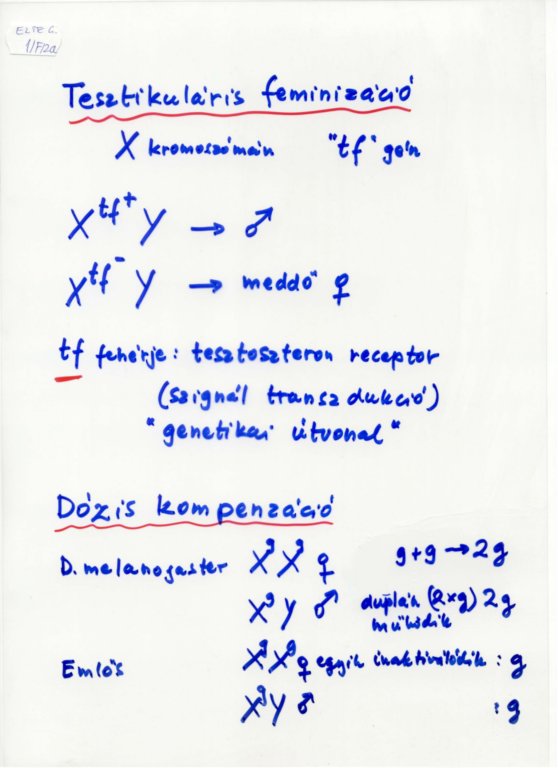 ELTE G.
1/F/2a
Tesztikuláris feminizáció
X kromoszómán "tf" gén
X^tf+ Y → ♂
X^tf- Y → meddő ♀
tf fehérje: tesztoszteron receptor
(szignál transzdukció)
"genetikai útvonal"
Dózis kompenzáció
D. melanogaster X^g X^g ♀ g+g → 2g
X^g Y ♂ duplán (2×g) 2g
működik
Emlős X^g X^g ♀ egyik inaktiválódik : g
X^g Y ♂ : g